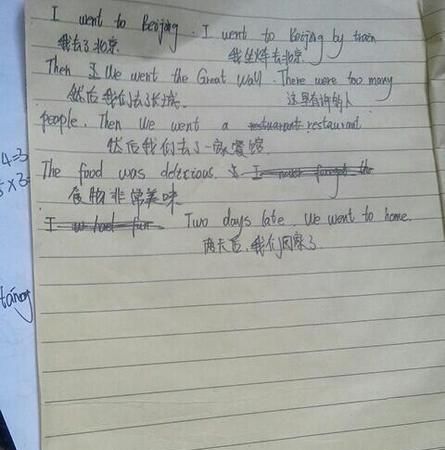 I went to Beijing. I went to Beijing by train
我去了北京 我坐火车去北京
Then I We went the Great Wall. There were too many
然后我们去了长城. 这里有许多人
people. Then We went a restuarant restaurant
然后我们去了一家餐馆
The food was delecious. I must forget the
食物非常美味
I had fun Two days late, we went to home.
两天后,我们回家了
4=3
5×3=